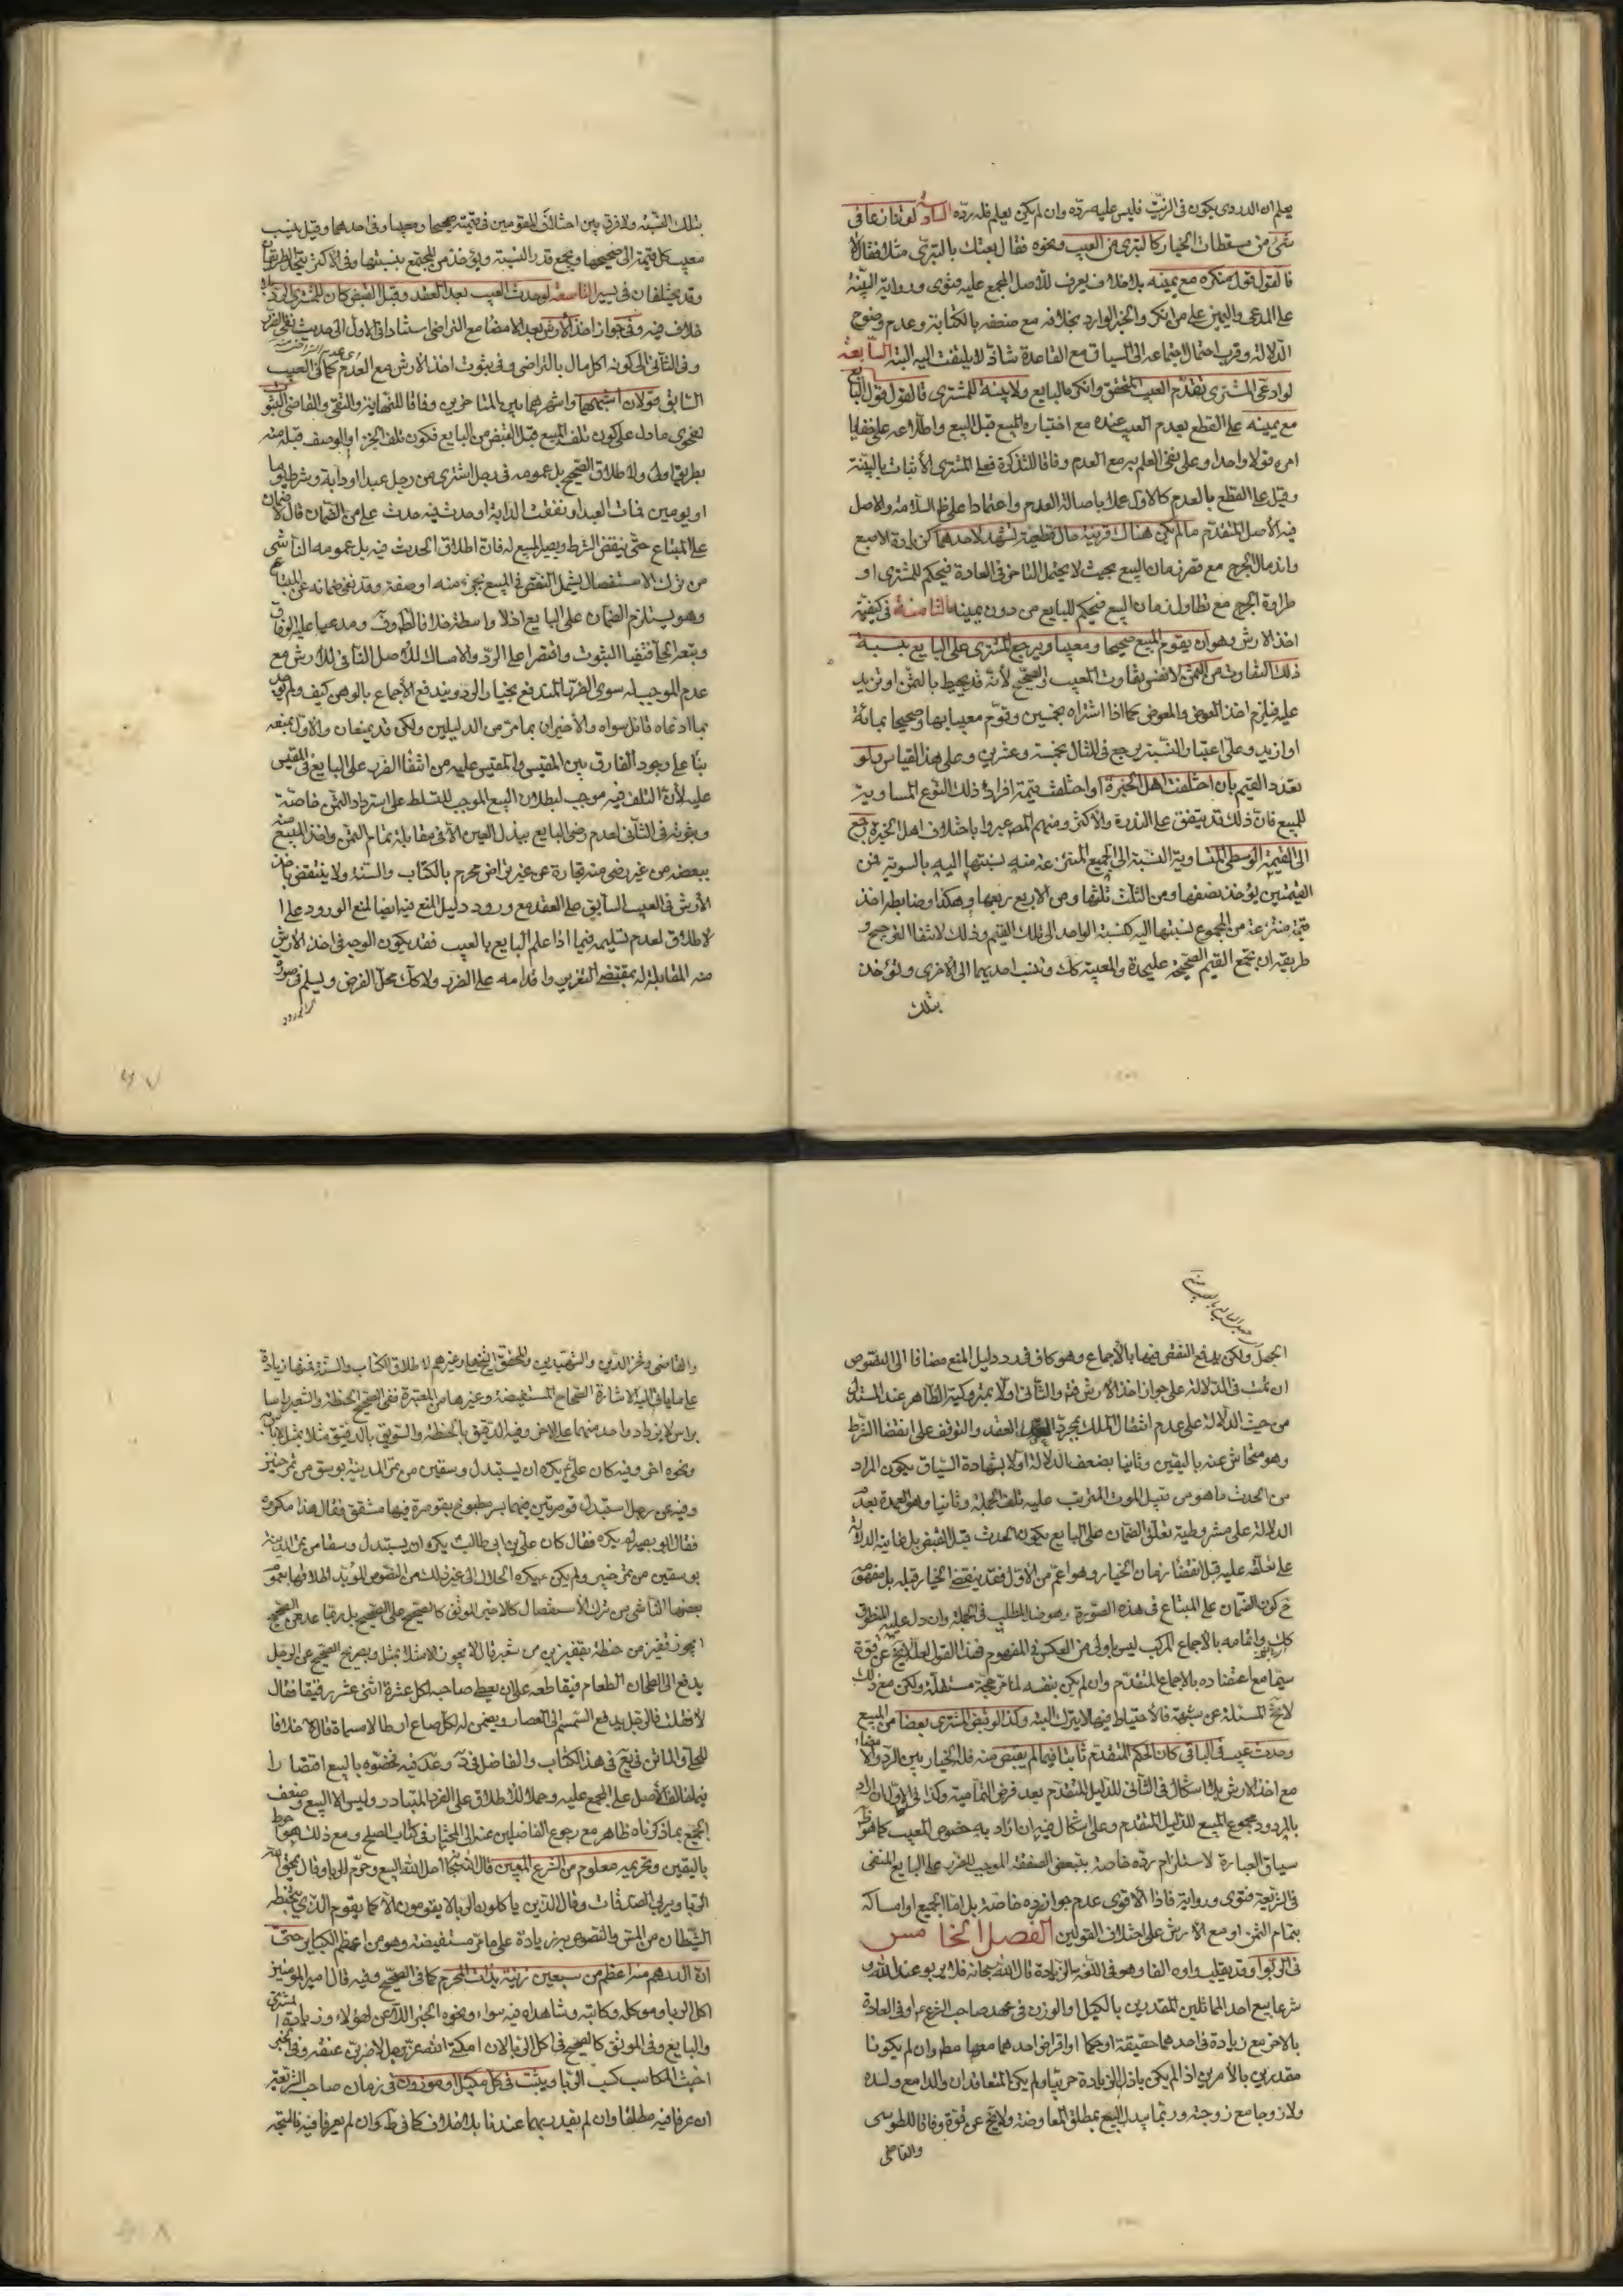 يعلم ان الدردى يكون فى الزيت فليس عليه ردّه وان لم يكن يعلم فله ردّه السادسة لو تنازعا فى
شئ من مسقطات الخيار كالتبرى من العيب ونحوه فقال بعتك بالتبرّى مثلا فقال لا
فالقول قول منكره مع يمينه بلا خلاف يعرف للاصل المجمع عليه فتوى ورواية البيّنة
على المدعى واليمين على من انكر والخبر الوارد بخلافه مع ضعفه بالكتابة وعدم وضوح
الدلالة وقرب احتمال اجتماعه الى السياق مع القاعدة شاذّ لا يلتفت اليه البتة السابعة
لو ادعى المشترى تقدّم العيب المتحقق وانكره البايع ولا بينة للمشترى فالقول قول البايع
مع يمينه على القطع بعدم العيب عنده مع اختباره المبيع قبل البيع واطلاعه على خفايا
امره قولا واحدا وعلى نفى العلم به مع العدم وفاقا للتذكرة فعلى المشترى الاثبات بالبيّنة
وقيل على القطع بالعدم كالاول عملا باصالة العدم واعتمادا على ظاهر السلامة والاصل
فيه الأصل المتقدّم ما لم يكن هناك قرينة حال قطعية تشهد لاحدهما كزيادة الاصبع
واندمال الجرح مع قصر زمان البيع بحيث لا يحتمل التاخر فى العادة فيحكم للمشترى او
طراوة الجرح مع تطاول زمان البيع فيحكم للبايع من دون يمينه الثامنة فى كيفية
اخذ الارش وهو ان يقوم المبيع صحيحا ومعيبا ويرجع المشترى على البايع بنسبة
ذلك التفاوت من الثمن لا نفس تفاوت المعيب والصحيح لأنّه قد يحيط بالثمن او تزيد
عليه فيلزم اخذ العوض والمعوض كما اذا اشتراه بخمسين وقوّم معيبا بها وصحيحا بمائة
او ازيد وعلى اعتبار النسبة يرجع فى المثال بخمسة وعشرين وعلى هذا القياس ولو
تعدّد القيم بان اختلفت اهل الخبرة او اختلفت قيمة افراد ذلك النوع المساوية
للمبيع فان ذلك قد يتفق على الندرة والأكثر ومنهم عبروا باختلاف اهل الخبرة رجع
الى القيمة الوسطى المتساوية النسبة الى الجميع المنتزعة منه نسبتها اليه بالسوية فمن
القيمتين يؤخذ نصفها ومن الثلث ثلثها ومن الاربع ربعها وهكذا وضابطه اخذ
قيمة منتزعة من المجموع نسبتها اليه كنسبة الواحد الى تلك القيم وذلك لانتفاء الترجيح و
طريقه ان تجمع القيم الصحيحة عليحدة والمعيبة كك وتنسب احديهما الى الاخرى ويؤخذ
بتلك
بتلك النسبة ولا فرق بين اختلاف المقومين فى قيمته صحيحا ومعيبا وفى احدهما وقيل ينسب
معيب كل قيمة الى صحيحها ويجمع قدر النسبة ويؤخذ من المجتمع بنسبتها وفى الاكثر يتحد الطريقان
وقد يختلفان فى يسير التاسعة لو حدث العيب بعد العقد وقبل القبض كان للمشترى الرد بلا
خلاف فيه وفى جواز اخذ الأرش بعد الامضاء مع التراضى استنادا فى الاول الى حديث نفى الضرر
وفى الثانى الى كونه اكل مال بالتراضى وفى ثبوت اخذ الأرش مع العدم كما فى العيب
السابق قولان اشبههما واشهرهما بين المتاخرين وفاقا للنهاية والتقى والقاضى الثبوت
لفحوى ما دل على كون تلف المبيع قبل القبض من البايع فكون تلف الجزء او الوصف قبله منه
بطريق اولى ولاطلاق الصحيح بل عمومه فى رجل اشترى من رجل عبدا او دابة وشرط يوما
او يومين فمات العبد او نفقت الدابة او حدث فيه حدث على من الضمان قال لا ضمان
على المبتاع حتى ينقضى الشرط ويصير المبيع له فان اطلاق الحديث فيه بل عمومه الناشى
من ترك الاستفصال يشمل النقص فى المبيع بجزء منه او صفة وقد نفى ضمانه عن المبتاع
وهو يستلزم الضمان على البايع اذ لا واسطة خلافا للطوسى ومدعيا عليه الوفاق
عدم الموجب له سوى الضرر المندفع بخيار الرد ويندفع الأجماع بالوهن كيف ولم يوجد
بما ادعاه قائل سواه والأخيران بما مرّ من الدليلين ولكن قد يضعفان والأول بمنعه
بناء على وجود الفارق بين المقيس والمقيس عليه من انتفاء الضرر على البايع فى المقيس
عليه لأن التلف فيه موجب لبطلان البيع الموجب للتسلط على استرداد الثمن خاصّة
وثبوته فى الثانى لعدم رضى البايع ببذل العين الا فى مقابلة تمام الثمن واخذ المبيع منه
ببعضه من غير رضى منه تجارة عن غير تراض محرم بالكتاب والسنة ولا ينتقض باخذ
الأرش فى العيب السابق على العقد مع ورود دليل المنع فيه ايضا لمنع الورود على ا
لاطلاق لعدم تسليمه فيما اذا علم البايع بالعيب فقد يكون الوجه فى اخذ الارش
منه المقابلة له بمقتضى التغرير واقدامه على الضرر ولا كك محل الفرض ويسلم فى صورة
الجهل ولكن يدفع النقض فيها بالأجماع وهو كاف فى رد دليل المنع مضافا الى النصوص
ان تمت فى الدلالة على جواز اخذ الأرش فيه والثانى اولا بمتروكية الظاهر عند المستدل
من حيث الدلالة على عدم انتقال الملك بمجرد العقد والتوقف على انقضاء الشرط
وهو متحاش عنه باليقين وثانيا بضعف الدلالة اولا بشهادة السياق بكون المراد
من الحدث ما هو من قبيل الموت المترتب عليه تلف الجملة وثانيا وهو العمدة بعدم
الدلالة على مشروطية تعلق الضمان على البايع بكون الحدث قبل القبض بل غايته الدلالة
على تعلقه عليه قبل انقضاء زمان الخيار وهو اعم من الأول فقد ينقضى الخيار قبله بل مفهومه
ح كون الضمان على المبتاع فى هذه الصورة وهو ضد المطلب فى الجملة وان دل عليه المنطوق
كك واتمامه بالاجماع المركب ليس باولى من العكس فى المفهوم فهذا القول لعله لا يخ عن قوة
سيّما مع اعتضاده بالاجماع المتقدّم وان لم يكن بنفسه لما مرّ حجة مستقلة ولكن مع ذلك
لا تخ المسئلة عن شبهة فالأحتياط فيها لا يترك البتة وكذا لو قبض المشترى بعضا من المبيع
وحدث عيب فى الباقى كان الحكم المتقدّم ثابتا فيما لم يقبض منه فله الخيار بين الرد والامضاء
مع اخذ الارش بلا اشكال فى الثانى للدليل المتقدّم بعد فرض التمامية وكذا فى الاول ان اراد
بالمردود مجموع المبيع للدليل المتقدم وعلى اشكال فيه ان اراد به خصوص المعيب كما هو ظ
سياق العبارة لاستلزام ردّه خاصة بتبعض الصفقة الموجب للضرر على البايع المنفى
فى الشريعة فتوى ورواية فاذا الاقوى عدم جواز رده خاصة بل اما الجميع او امساكه
بتمام الثمن او مع الأرش على اختلاف القولين الفصل الخامس
فى الربوا وقد يقلب واوه الفا وهو فى اللغة الزيادة قال الله سبحانه فلا يربو عند الله و
شرعا بيع احد المماثلين المقدرين بالكيل او الوزن فى عهد صاحب الشرع ع او فى العادة
بالاخر مع زيادة فى احدهما حقيقة او حكما او اقراض احدهما معها مطم وان لم يكونا
مقدرين بالأمرين اذا لم يكن باذل الزيادة حربيا ولم يكن المتعاقدان والدا مع ولده
ولا زوجا مع زوجته وربما يبدل البيع بمطلق المعاوضة ولا يخ عن قوة وفاقا للطوسى
والقاضى
والقاضى وفخر الدين والشهيدين والمحقق الشيخ على وغيرهم لاطلاق الكتاب والسنة فمنها زيادة
على ما ياتى اليه الاشارة الصحاح المستفيضة وغيرها من المعتبرة ففى الصحيح الحنطة والشعير راسا
براس لا يزداد واحد منهما على الاخر وفيه الدقيق بالحنطة والسويق بالدقيق مثلا بمثل لا باس به
ونحوه اخر وفيه كان على ع يكره ان يستبدل وسقين من تمر المدينة بوسق من تمر خيبر
وفيه عن رجل استبدل قوصرتين فيهما بسر مطبوخ بقوصرة فيها مشقق فقال هذا مكروه
فقال ابو بصير لم يكره فقال كان على بن ابى طالب يكره ان يستبدل وسقا من تمر المدينة
بوسقين من تمر خيبر ولم يكن ع يكره الحلال الى غير ذلك من النصوص المؤيد اطلاقها بعموم
بعضها الناشى من ترك الأستفصال كالاخير الموثق كالصحيح على الصحيح بل ربما عد من الصحيح
ايجوز قفيز من حنطة بقفيزين من شعير قال لا يجوز الا مثلا بمثل وبصريح الصحيح عن الرجل
يدفع الى الطحان الطعام فيقاطعه على ان يعطى صاحبه لكل عشرة اثنى عشر دقيقا فقال
لا فقلت فالرجل يدفع السمسم الى العصار ويضمن له لكل صاع ارطالا مسماة قال لا خلافا
للحلى والماتن فى يع فى هذا الكتاب والفاضل فى ف وعد فيه فخصّوه بالبيع اقتصارا
فيما خالف الأصل على المجمع عليه وحملا للاطلاق على الفرد المتبادر وليس الا البيع وضعف
الجميع بما ذكرناه ظاهر مع رجوع الفاضلين عنه الى المختار فى كتاب الصلح ومع ذلك هو احوط
باليقين وتحريمه معلوم من الشرع المبين قال الله تعالى احل الله البيع وحرّم الربا وقال يمحق الله
الربا ويربى الصدقات وقال الذين ياكلون الربا لا يقومون الا كما يقوم الذى يتخبطه
الشيطان من المس والنصوص به زيادة على ما مرّ مستفيضة وهو من اعظم الكباير حتى
ان الدرهم منه اعظم من سبعين زنية بذات المحرم كما فى الصحيح وفيه قال امير المؤمنين
اكل الربا وموكله وكاتبه وشاهداه فيه سواء ونحوه الخبر اللاعن لهؤلاء وزيادة المشترى
والبايع وفى الموثق كالصحيح فى اكل الربا لان امكننى الله عز وجل لأضربن عنقه وفى الخبر
اخبث المكاسب كسب الربا ويثبت فى كل مكيل او موزون فى زمان صاحب الشريعة
ان عرفا فيه مطلقا وان لم يقدر بهما عندنا بلا خلاف كما فى ط وان لم يعرفا فيه فالمتجه